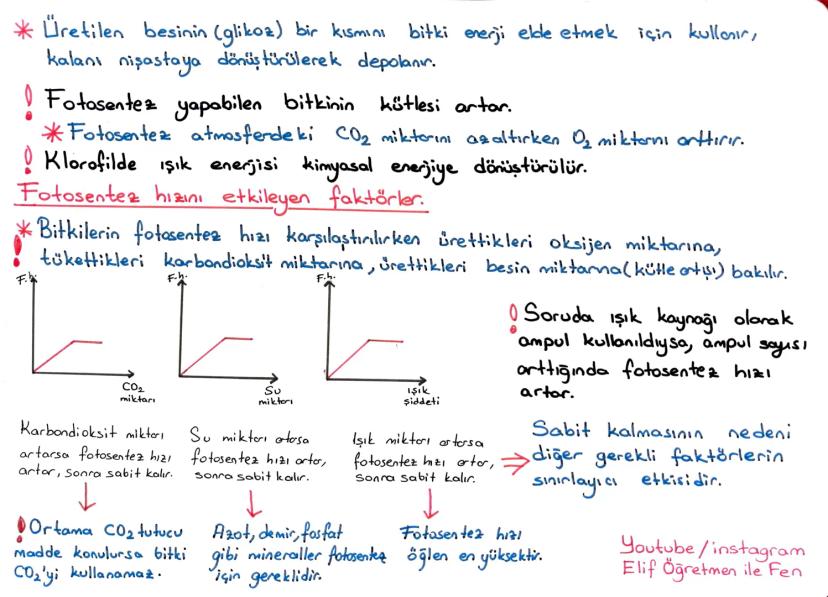 * Üretilen besinin (glikoz) bir kısmını bitki enerji elde etmek için kullanır,
kalanı nişastaya dönüştürülerek depolanır.
! Fotosentez yapabilen bitkinin kütlesi artar.
* Fotosentez atmosferdeki CO₂ miktarını azaltırken O₂ miktarını arttırır.
! Klorofilde ışık enerjisi kimyasal enerjiye dönüştürülür.
Fotosentez hızını etkileyen faktörler.
* Bitkilerin fotosentez hızı karşılaştırılırken ürettikleri oksijen miktarına,
! tükettikleri karbondioksit miktarına, ürettikleri besin miktarına (kütle artışı) bakılır.
F.h.
CO₂
miktarı
F.h.
Su
miktarı
F.h.
ışık
şiddeti
! Soruda ışık kaynağı olarak
ampul kullanıldıysa, ampul sayısı
arttığında fotosentez hızı
artar.
Karbondioksit miktarı
artarsa fotosentez hızı
artar, sonra sabit kalır.
Su miktarı artarsa
fotosentez hızı artar,
sonra sabit kalır.
Işık miktarı artarsa
fotosentez hızı artar,
sonra sabit kalır.
⇒ Sabit kalmasının nedeni
diğer gerekli faktörlerin
sınırlayıcı etkisidir.
! Ortama CO₂ tutucu
madde konulursa bitki
CO₂'yi kullanamaz.
Azot, demir, fosfat
gibi mineraller fotosentez
için gereklidir.
Fotosentez hızı
öğlen en yüksektir.
Youtube / instagram
Elif Öğretmen ile Fen